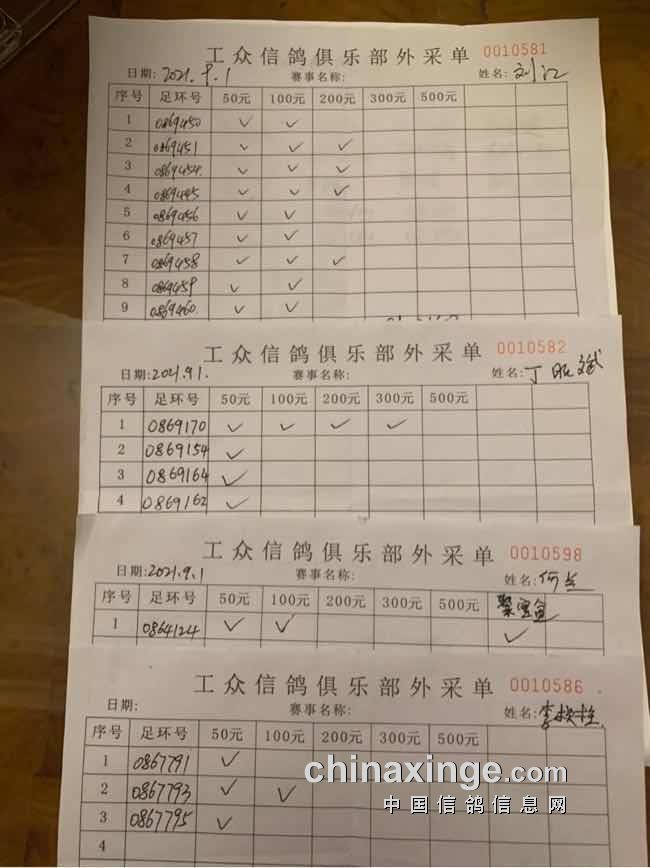 工众信鸽俱乐部外采单 0010581
日期: 2021.9.1 赛事名称: 姓名: 刘江
序号 足环号 50元 100元 200元 300元 500元
1 0869450 ✓ ✓
2 0869451 ✓ ✓ ✓
3 0869454 ✓ ✓ ✓
4 0869455 ✓ ✓ ✓
5 0869456 ✓ ✓
6 0869457 ✓ ✓
7 0869458 ✓ ✓ ✓
8 0869459 ✓ ✓
9 0869460 ✓ ✓
工众信鸽俱乐部外采单 0010582
日期: 2021.9.1. 赛事名称: 姓名: 丁
序号 足环号 50元 100元 200元 300元 500元
1 0869170 ✓ ✓ ✓ ✓
2 0869154 ✓
3 0869164 ✓
4 0869162 ✓
工众信鸽俱乐部外采单 0010598
日期: 2021.9.1 赛事名称: 姓名: 何兰
序号 足环号 50元 100元 200元 300元 500元
1 0864124 ✓ ✓ ✓
工众信鸽俱乐部外采单 0010586
日期: 赛事名称: 姓名: 李
序号 足环号 50元 100元 200元 300元 500元
1 0867791 ✓
2 0867793 ✓ ✓
3 0867795 ✓
4
chinaxinge.com
中国信鸽信息网